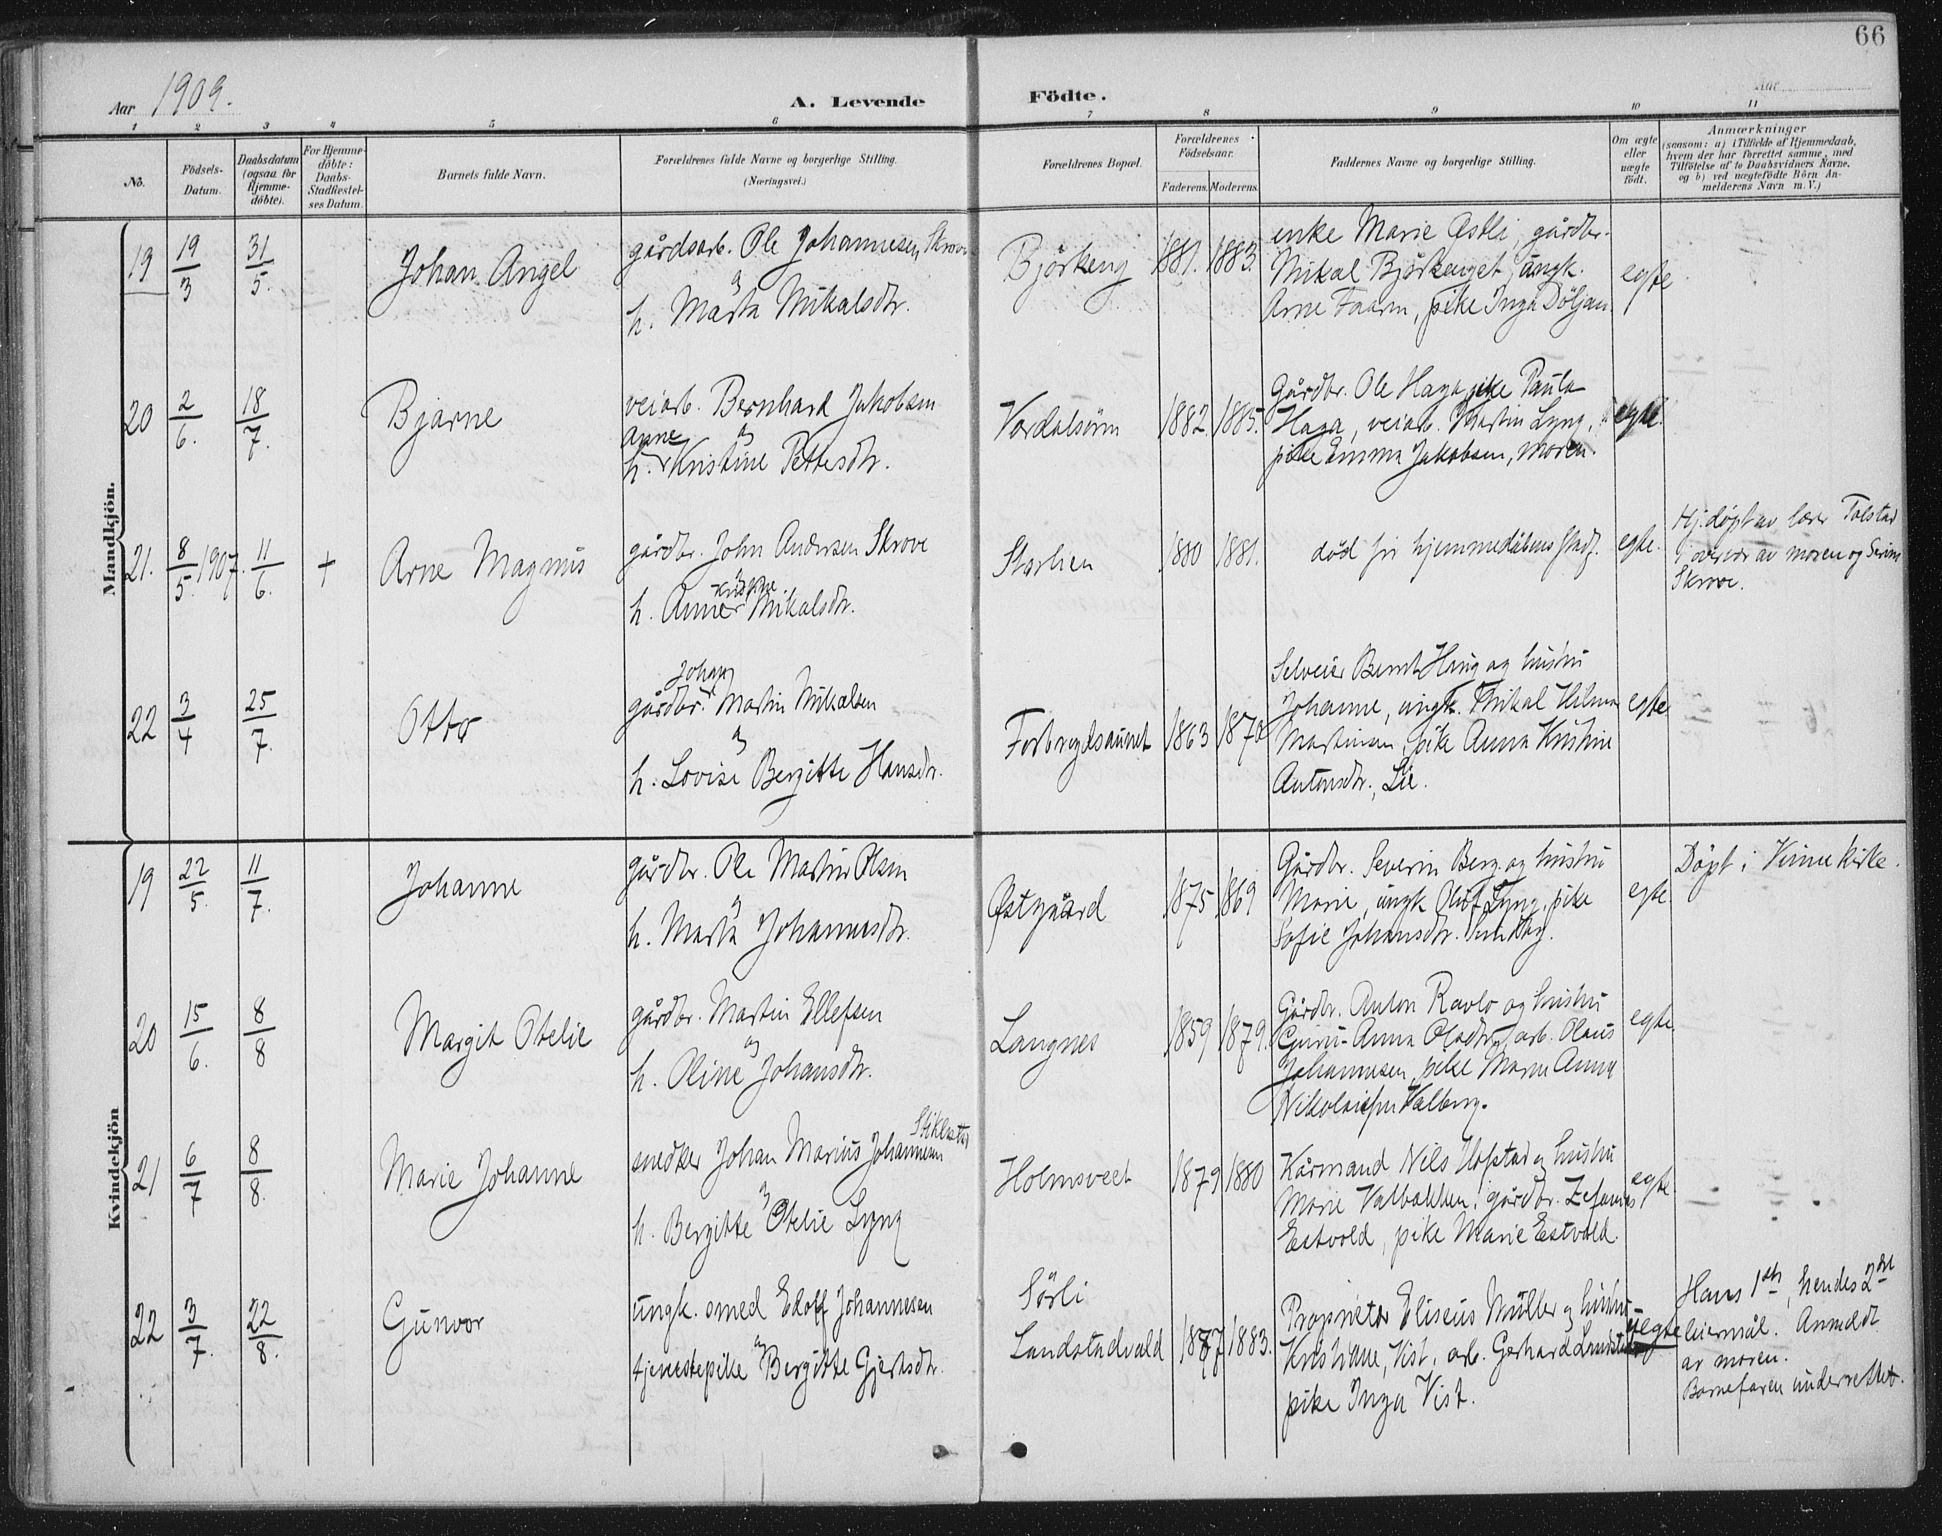 66
Aar 1909.
A. Levende Födte.
Aar
1 2 3 4 5 6 7 8 9 10 11
No.
Födsels-
Datum.
Daabsdatum
(ogsaa for
Hjemme-
döbte).
For Hjemme-
döbte:
Daabs-
Stadfæstel-
ses Datum.
Barnets fulde Navn.
Forældrenes fulde Navne og borgerlige Stilling.
(Næringsvei.)
Forældrenes Bopæl.
Forældrenes
Födselsaar.
Faderens. Moderens.
Faddernes Navne og borgerlige Stilling.
Om ægte
eller
uægte
födt.
Anmærkninger
(saasom: a) i Tilfælde af Hjemmedaab,
hvem der har forrettet samme, med
Tilföielse af to Daabsvidners Navne,
og b) ved uægtefödte Börn An-
melderens Navn m. V.)
Mandkjön.
19 19/3 31/5. Johan Angel
gårdsarb. Ole Johannesen Skrove
og
h. Marta Mikalsdtr.
Björkeng 1881. 1883.
enke Marie Østli, gårdbr.
Mikal Björkenget, ungk.
Arne Faarn, pike Inga Döljan.
egte
20 2/6. 18/7. Bjarne
veiarb. Bernhard Jakobsen
Anne og
h. Kristine Pettersdtr.
Værdalsören 1882. 1885.
Gårdbr. Ole Haga, pike Paula
Haga, veiarb. Martin Lyng,
pike Emma Jakobsen, moren.
egte.
21. 8/5. 1907. 11/6. + Arne Magnus
gårdbr. John Andersen Skrove
Kristine
h. Anne Mikalsdtr.
Storlien 1880 1881.
död för hjemmedåbens stadf.
egte.
Hj.døpt av lærer Tolstad
i overvær av moren og Serine
Skrove.
22 3/4 25/7. Otto
Johan
gårdbr. Martin Mikalsen
og
h. Lovise Bergitte Hansdr.
Forbregdsaunet 1863 1870
Selveier Bernt Haug og hustru
Johanne, ungk. Mikal Hilmar
Martinsen, pike Anna Kristine
Antonsdtr., Lie.
egte
Kvindekjön
19 22/5. 11/7. Johanne
gårdbr. Ole Martin Olsen
og
h. Marta Johannesdtr.
Østgård 1875 1869
Gårdbr. Severin Berg og hustru
Marie, ungk Oluf Lyng, pike
Sofie Johansdtr.
egte.
Døpt i Vinne kirke.
20 15/6. 8/8 Margit Otelie
gårdbr. Martin Ellefsen
og
h. Oline Johansdtr.
Langnes 1859 1879.
Gårdbr. Anton Ravlo og hustru
Guru-Anna Olsdtr, arb. Olaus
Johannesen, pike Maren Anna
Valberg.
egte.
21 6/7 8/8. Marie Johanne
Stiklestad
snedker Johan Marius Johannesen
og
h. Bergitte Otelie Lyng
Holmsveet 1879 1880
Kårmand Nils Hofstad og hustru
Marie Valbakken, gårdbr. Zefanias
Estvold, pike Marie Estvold.
egte
22 3/7. 22/8. Gunvor
ungk. smed Edolf Johannesen
og
tjenestepike Bergitte Gjertsdtr.
Sörli
Landstadvald 1887 1883.
Proprietær Eliseus Müller og hustru
Kristiane, Vist, arb. Gerhard Landstad
pike Inga Vist.
uegte
Hans 1ste, hendes 2det
leiermål. Anmeldt
av moren.
Barnefaren underrettet.